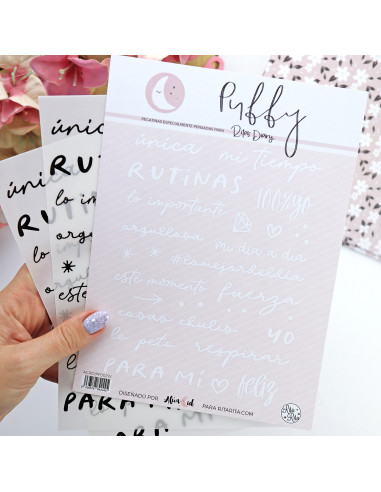 Puffy
PEGATINAS ESPECIALMENTE PENSADAS PARA Rita's Diary
única mi tiempo
RUTINAS 100%yo
lo importante
orgullosa mi día a día
#lamejorbaildia
este momento fuerza
cosas chulis YO
lo peto respirar
PARA MÍ feliz
DISEÑADO POR PARA RITARITA.COM
Rita
Rita
única
RUTI
lo im
orgu
este
única
RUT
lo
PARA